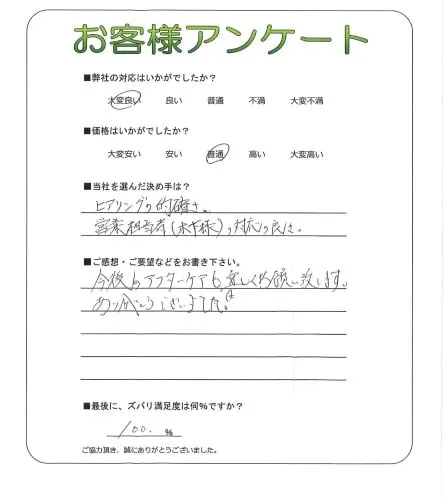 お客様アンケート
■弊社の対応はいかがでしたか?
大変良い 良い 普通 不満 大変不満
■価格はいかがでしたか?
大変安い 安い 普通 高い 大変高い
■当社を選んだ決め手は?
ヒアリングの的確さ。
営業担当者(水下様)の対応の良さ。
■ご感想・ご要望などをお書き下さい。
今後のアフターケアも宜しくお願い致します。
あり がとうございました。
■最後に、ズバリ満足度は何%ですか?
100. %
ご協力頂き、誠にありがとうございました。